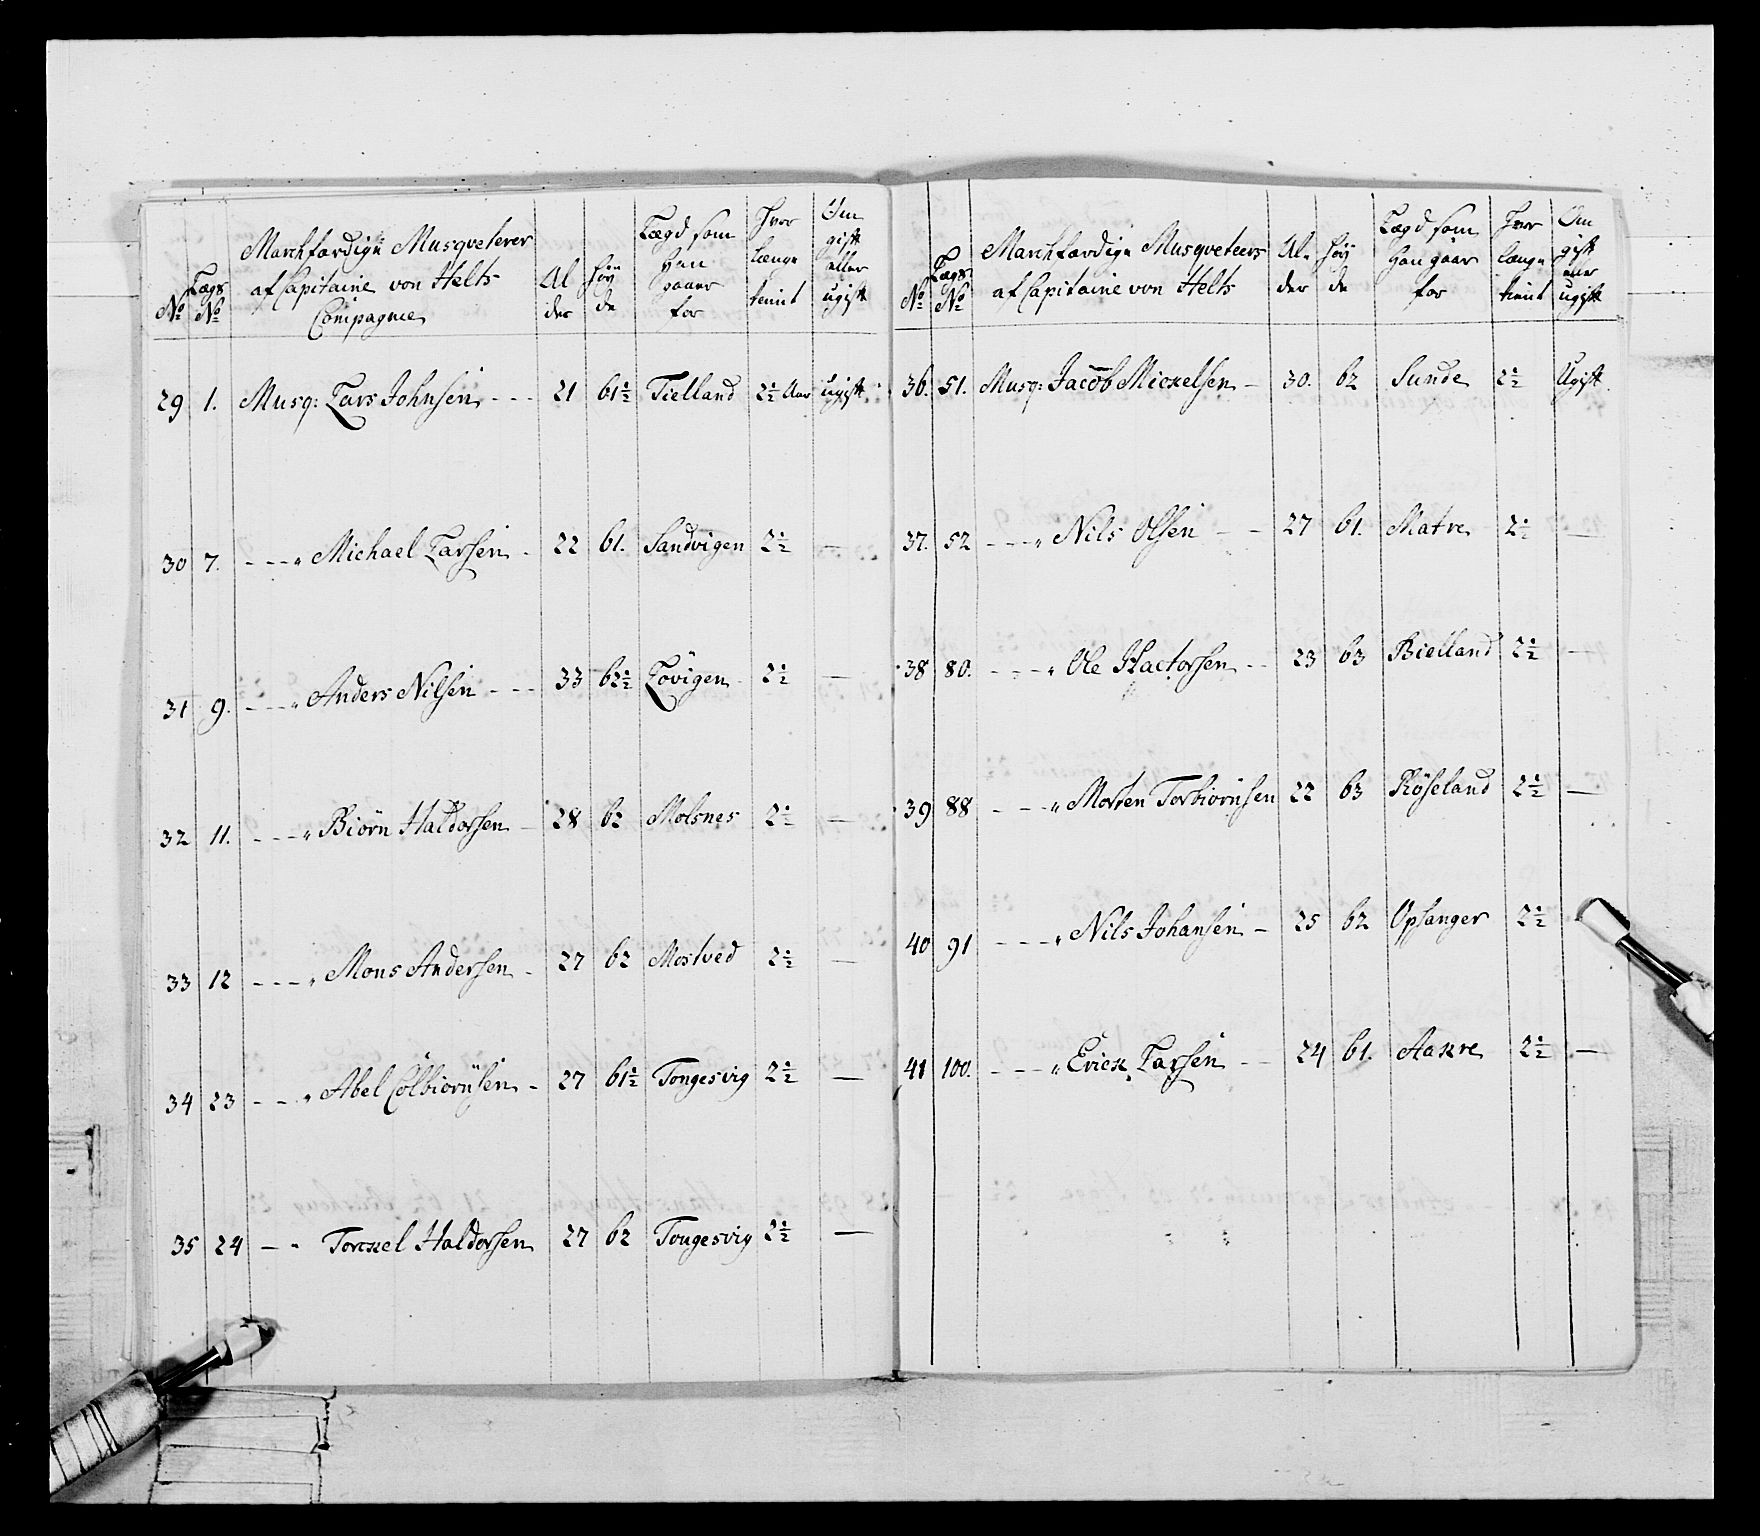 No
Lægs No
Marchfærdige Musqveterer
af Capitaine von Helts
Compagnie
Al
der
Høy
de
Lægd som
Han
gaaer
for
Hvor
længe
tient
Om
gift
eller
ugift
29 1. Musq: Lars Johnsen --- 21 61½ Tielland 2½ Aar ugift
30 7. ---" Michael Larsen - 22 61. Sandvigen 2½ —
31 9. ---" Anders Nilsen --- 33 62½ Løvigen 2½ —
32 11. ---" Biørn Haldorsen - 28 62 Molsnes 2½ —
33 12 ---" Mons Andersen - 27 62 Mostved 2½ —
34 23 ---" Abel Colbiørnsen - 27 61½ Tongesvig 2½ —
35 24 — " Torckel Haldorsen 27 62 Tongesvig 2½ —
No
Lægs No
Marchfærdige Musqveteers
af Capitaine von Helts
Al-
der
Høy
de
Lægd som
Han gaar
for
Hvor
længe
tient
Om
gift
eller
ugift
36. 51. Musq: Jacob Mickelsen - 30. 62 Sunde 2½ Ugift
37. 52 ---" Nils Olsen -- 27 61. Matre 2½ —
38 80. ---" Ole Hactorsen -- 23 63 Bielland 2½ —
39 88 ---" Morten Torbiørnsen 22 63 Røseland 2½ —
40 91 ---" Nils Johansen - 25 62 Opsanger 2½
41 100. ---" Erick Larsen -- 24 61. Aakre 2½ —